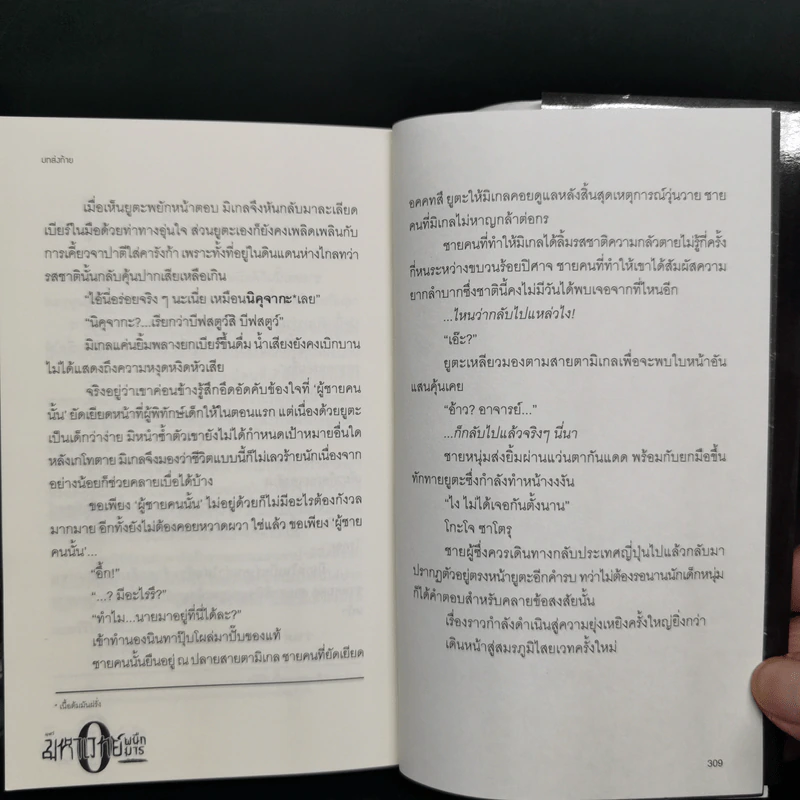 บทส่งท้าย
เมื่อเห็นยูตะพยักหน้าตอบ มิเกลจึงหันกลับมาละเลียด
เบียร์ในมือด้วยท่าทางอุ่นใจ ส่วนยูตะเองก็ยังคงเพลิดเพลินกับ
การเคี้ยวจาปาตีใส่คารังก้า เพราะทั้งที่อยู่ในดินแดนห่างไกลทว่า
รสชาตินั้นกลับคุ้นปากเสียเหลือเกิน
“ไอ้นี่อร่อยจริง ๆ นะเนี่ย เหมือนนิคุจากะ*เลย”
“นิคุจากะ?...เรียกว่าบีฟสตูว์สิ บีฟสตูว์”
มิเกลแค่นยิ้มพลางยกเบียร์ขึ้นดื่ม น้ำเสียงยังคงเบิกบาน
ไม่ได้แสดงถึงความหงุดหงิดหัวเสีย
จริงอยู่ว่าเขาค่อนข้างรู้สึกอึดอัดคับข้องใจที่ ‘ผู้ชายคน
นั้น’ ยัดเยียดหน้าที่ผู้พิทักษ์เด็กให้ในตอนแรก แต่เนื่องด้วยยูตะ
เป็นเด็กว่าง่าย มิหนำซ้ำตัวเขายังไม่ได้กำหนดเป้าหมายอื่นใด
หลังเกโทตาย มิเกลจึงมองว่าชีวิตแบบนี้ก็ไม่เลวร้ายนักเนื่องจาก
อย่างน้อยก็ช่วยคลายเบื่อได้บ้าง
ขอเพียง ‘ผู้ชายคนนั้น’ ไม่อยู่ด้วยก็ไม่มีอะไรต้องกังวล
มากมาย อีกทั้งยังไม่ต้องคอยหวาดผวา ใช่แล้ว ขอเพียง ‘ผู้ชาย
คนนั้น’...
“อึ้ก!”
“...? มีอะไรรึ?”
“ทำไม...นายมาอยู่ที่นี่ได้ละ?”
เข้าทำนองนินทาปุ๊บโผล่มาปั๊บของแท้
ชายคนนั้นยืนอยู่ ณ ปลายสายตามิเกล ชายคนที่ยัดเยียด
* เนื้อต้มมันฝรั่ง
มหาเวทย์ 0 ผนึกมาร
อคคทสึ ยูตะให้มิเกลคอยดูแลหลังสิ้นสุดเหตุการณ์วุ่นวาย ชาย
คนที่มิเกลไม่หาญกล้าต่อกร
ชายคนที่ทำให้มิเกลได้ลิ้มรสชาติความกลัวตายไม่รู้กี่ครั้ง
กี่หนระหว่างขบวนร้อยปิศาจ ชายคนที่ทำให้เขาได้สัมผัสความ
ยากลำบากซึ่งชาตินี้คงไม่มีวันได้พบเจอจากที่ไหนอีก
...ไหนว่ากลับไปแหล่วไง!
“เอ๊ะ?”
ยูตะเหลียวมองตามสายตามิเกลเพื่อจะพบใบหน้าอัน
แสนคุ้นเคย
“อ้าว? อาจารย์...”
...ก็กลับไปแล้วจริงๆ นี่นา
ชายหนุ่มส่งยิ้มผ่านแว่นตากันแดด พร้อมกับยกมือขึ้น
ทักทายยูตะซึ่งกำลังทำหน้างงงัน
“ไง ไม่ได้เจอกันตั้งนาน”
โกะโจ ซาโตรุ
ชายผู้ซึ่งควรเดินทางกลับประเทศญี่ปุ่นไปแล้วกลับมา
ปรากฏตัวอยู่ตรงหน้ายูตะอีกคำรบ ทว่าไม่ต้องรอนานนักเด็กหนุ่ม
ก็ได้คำตอบสำหรับคลายข้อสงสัยนั้น
เรื่องราวกำลังดำเนินสู่ความยุ่งเหยิงครั้งใหญ่ยิ่งกว่า
เดินหน้าสู่สมรภูมิไสยเวทครั้งใหม่
309